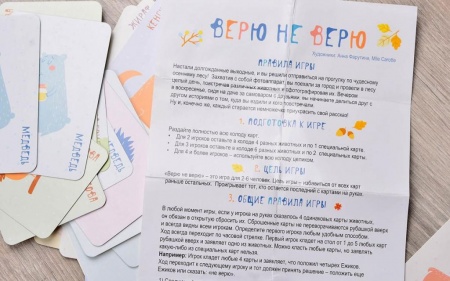 ВЕРЮ НЕ ВЕРЮ
ПРАВИЛА ИГРЫ
Настали долгожданные выходные, и вы решили отправиться на прогулку по чудесному
осеннему лесу! Захватив с собой фотоаппарат, вы поехали за город и провели в лесу
целый день, повстречав различных животных и сфотографировав их. Вечером
в воскресенье, сидя на даче за самоваром с друзьями, вы начинаете делиться друг с
другом историями о том, куда вы ходили и кого повстречали.
Ну и, конечно же, каждый старается немножечко приукрасить свой рассказ!
1. ПОДГОТОВКА К ИГРЕ
Раздайте полностью всю колоду карт.
• Для 2 игроков оставьте в колоде 4 разных животных и по 1 специальной карте.
• Для 3 игроков оставьте в колоде 6 разных животных и по 2 специальных карты.
• Для 4 и более игроков – используйте всю колоду целиком.
2. ЦЕЛЬ ИГРЫ
«Верю не верю» – это игра для 2-6 человек. Цель игры – избавиться от всех карт
раньше остальных. Проигрывает тот, кто остается последний с картами на руках.
3. ОБЩИЕ ПРАВИЛА ИГРЫ
В любой момент игры, если у игрока на руках оказалось 4 одинаковых карты животных,
он обязан в открытую сбросить их. Сброшенные карты не переворачиваются рубашкой
вверх и всегда видны всем игрокам. Определите первого игрока любым удобным способом.
Ход всегда переходит по часовой стрелке. Первый игрок кладет на стол от 1 до 5 любых карт
рубашкой вверх и заявляет одно из животных. Можно класть любые карты, но заявлять
какую-либо из специальных карт нельзя.
Например: Игрок кладет любые 4 карты и заявляет, что положил четырех Ежиков.
Ход переходит к следующему игроку и тот должен принять решение – положить еще
Ежиков или сказать: «не верю».
МЕДВЕДЬ
МЕДВЕДЬ
МЕДВЕДЬ